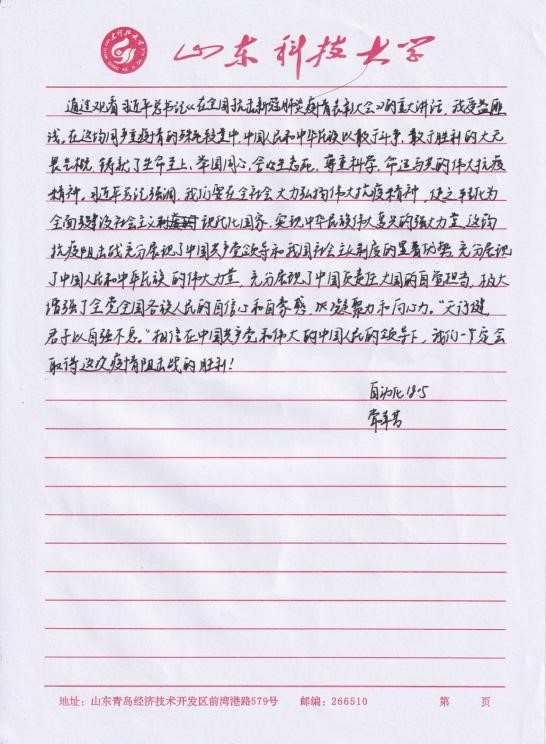 山东科技大学
通过观看习近平总书记《在全国抗击新冠肺炎疫情表彰大会》的重大讲话，我受益匪
浅。在这场同严重疫情的殊死较量中，中国人民和中华民族以敢于斗争、敢于胜利的大无
畏气概，铸就了生命至上、举国同心、舍生忘死、尊重科学、命运与共的伟大抗疫
精神。习近平总书记强调，我们要在全社会大力弘扬伟大抗疫精神，使之转化为
全面建设社会主义现代化国家、实现中华民族伟大复兴的强大力量。这场
抗疫阻击战充分展现了中国共产党领导和我国社会主义制度的显著优势，充分展现
了中国人民和中华民族的伟大力量，充分展现了中国负责任大国的自觉担当，极大
增强了全党全国各族人民的自信心和自豪感、凝聚力和向心力。“天行健，
君子以自强不息。”相信在中国共产党和伟大的中国人民的领导下，我们一定会
取得这次疫情阻击战的胜利！
自动化18-5
地址：山东青岛经济技术开发区前湾港路579号 邮编：266510 第 页